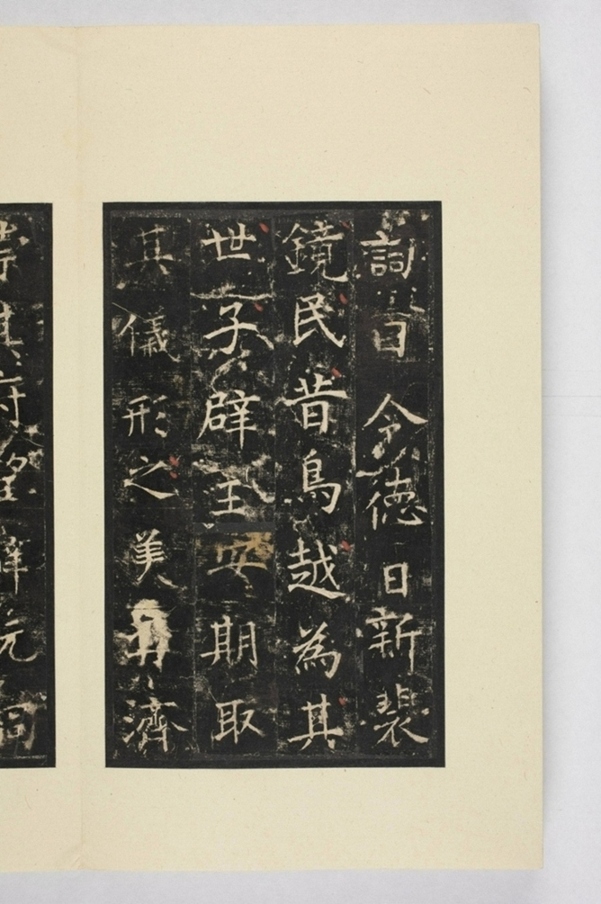 詞曰令德日新裴
鏡民昔鳥越為其
世子辟王安期取
其儀形之美再濟
其府望辟